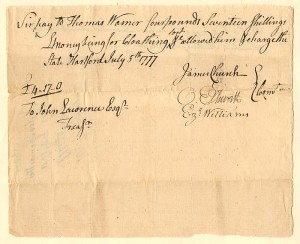 Sir pay to Thomas Warner four pounds Seventeen Shillings
Money being for Cloathing &c allowed him & charge the
State. Hartford July 5th 1777
James Church
£4.17.0
O. Ellsworth
Comtee
To John Lawrence Esqr
Ez. Williams
Treasr